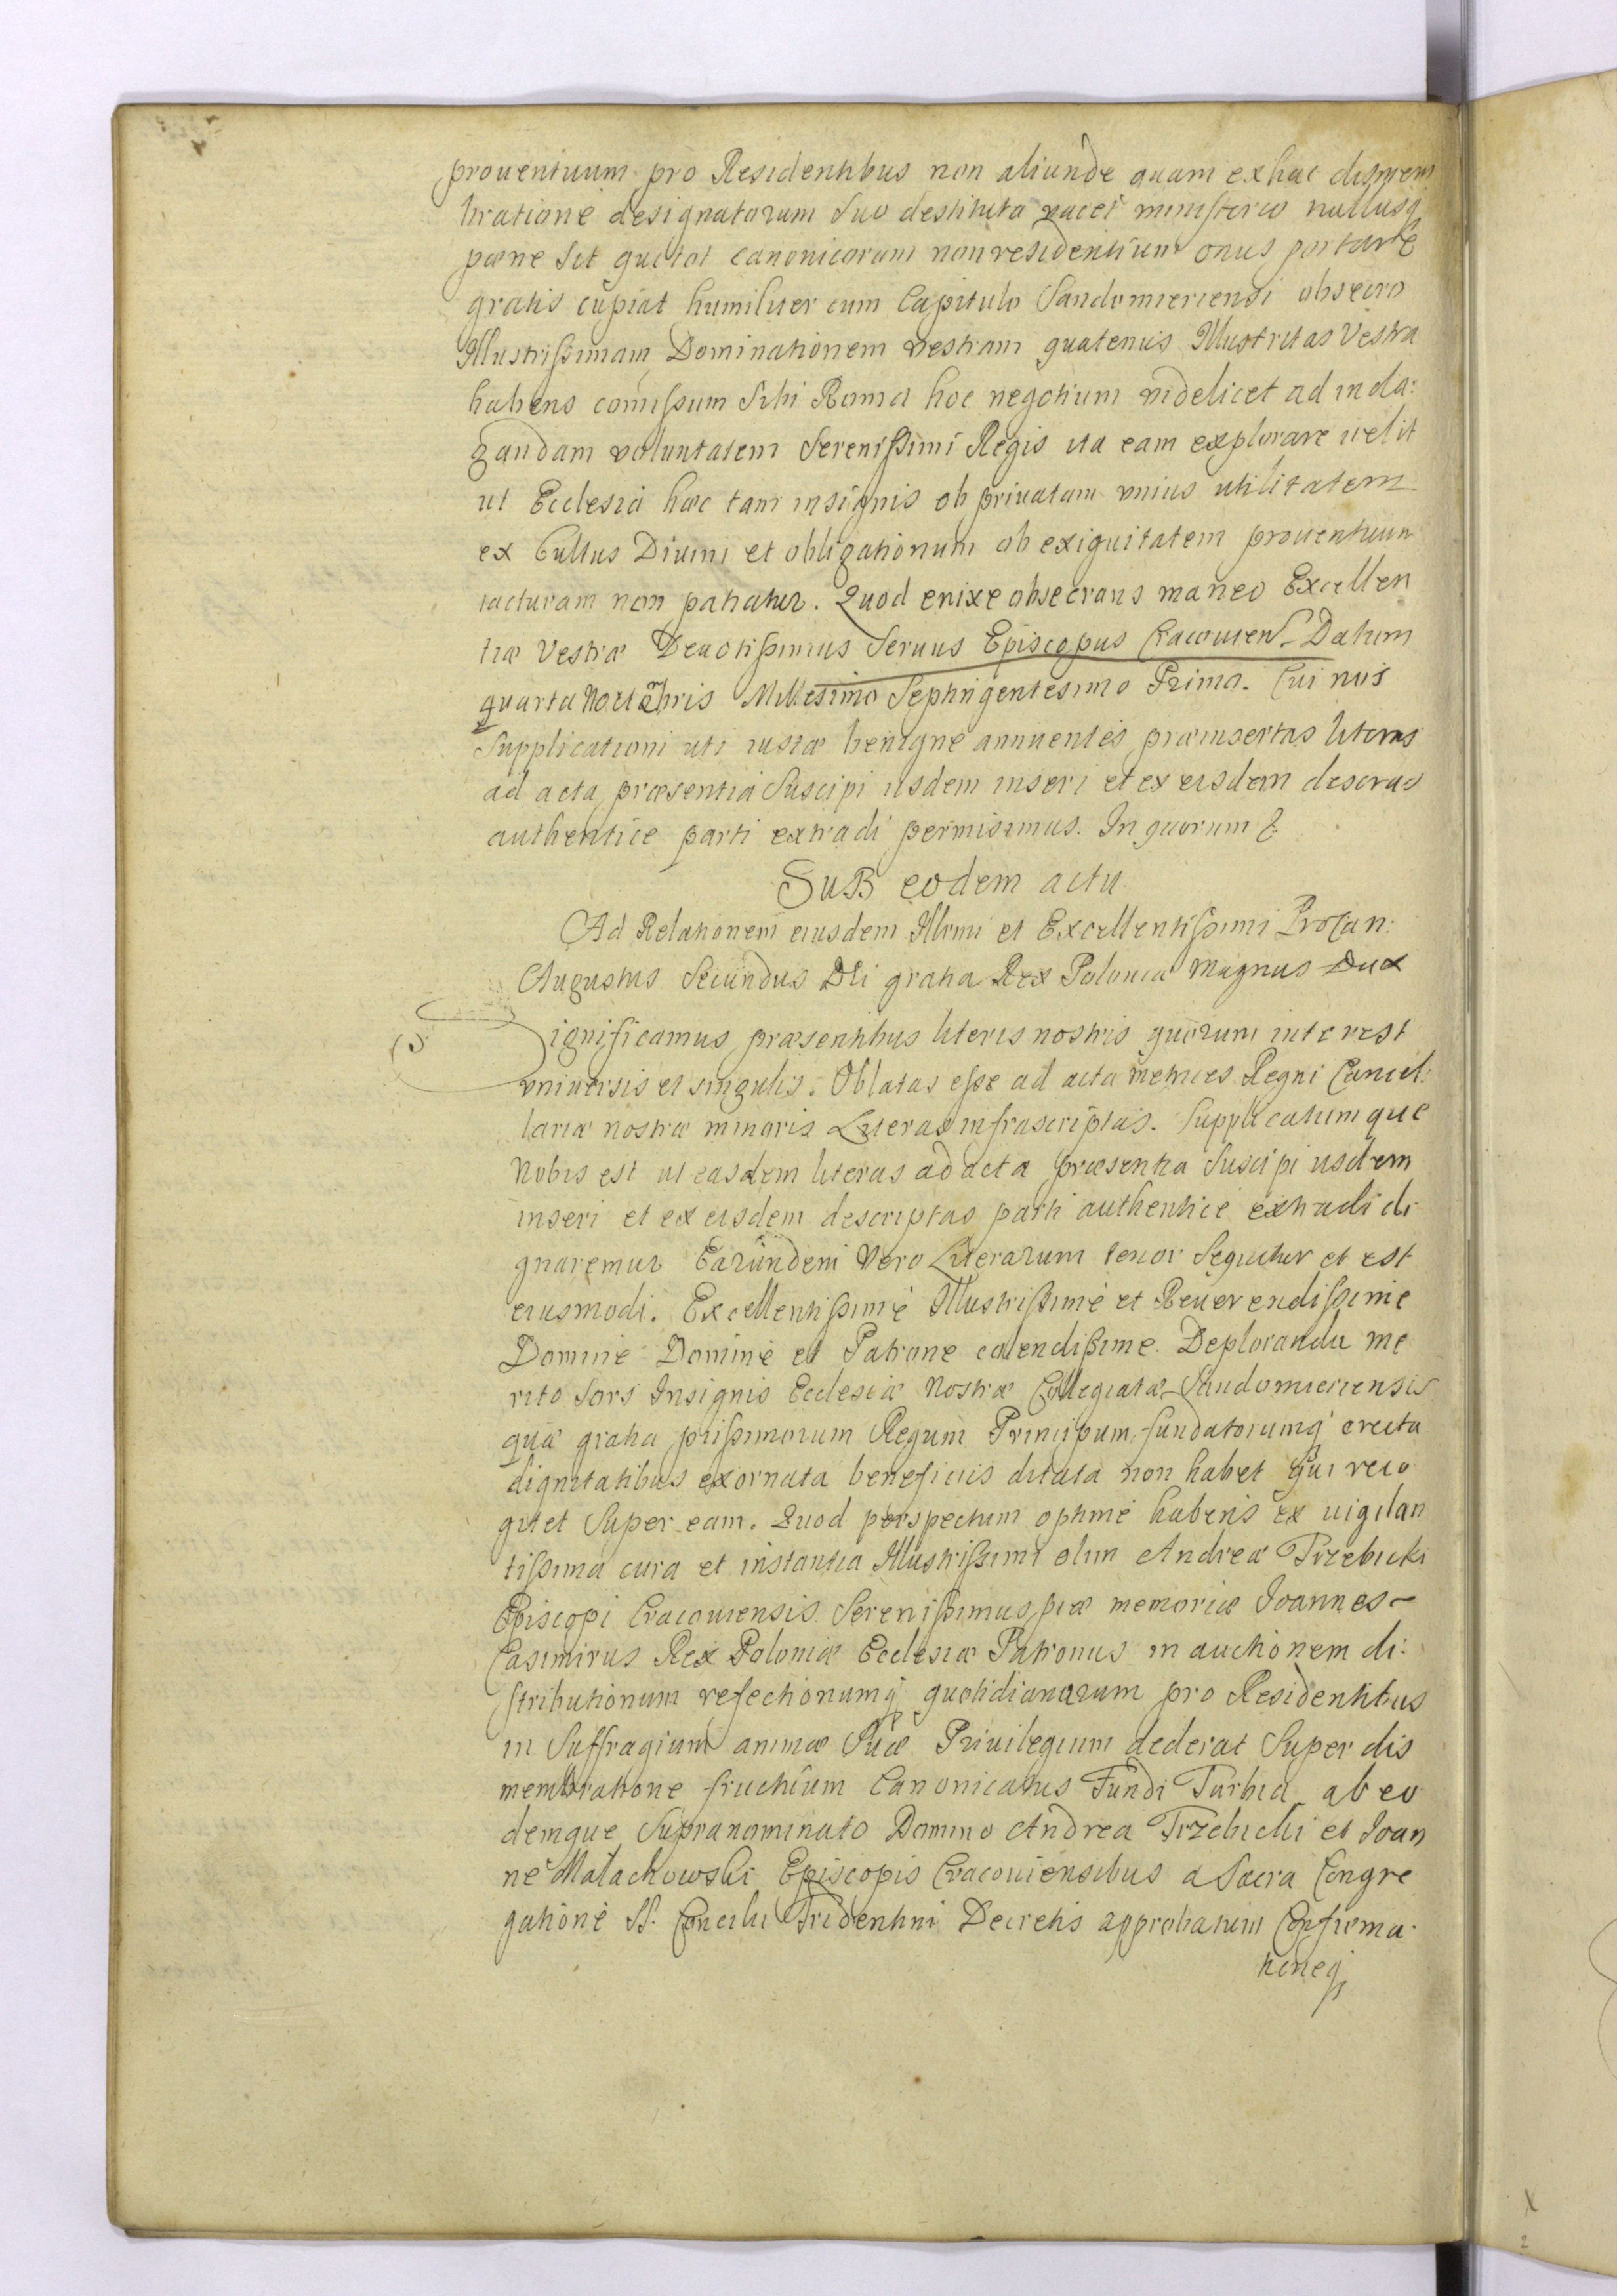 prouentuum pro Residentibus non aliunde quam ex hac dismem
bratione designatorum suo destituta vacet ministerio nullusq
pæne sit qui tot canonicorum non residentium onus portare
gratis cupiat humiliter cum Capitulo Sandomiriensi obsecro
Illustrissimam Dominationem vestram quatenus Illustritas Vestra
habens comissum Sibi Roma hoc negotium videlicet ad inda:
gandam voluntatem Serenissimi Regis ita eam explorare velit
ut Ecclesia hæc tam insignis ob priuatam unius utilitatem
ex Cultus Diuini et obligationum ob exiguitatem prouentuum
iacturam non patiatur. Quod enixe obsecrans maneo Excellen
tiæ Vestræ Deuotissimus Seruus Episcopus Cracouien. Datum
quarta Millesimo Septingentesimo Primo. Cui nos
Supplicationi uti iustæ benigne annuentes præinsertas literas
ad acta præsentia Suscipi iisdem inseri et ex eisdem descrus
authentice parti extradi permisimus. In quorum &
SuB eodem actu
Ad Relationem eiusdem Illmi et Excellentissimi Procan:
Augustus Secundus DEi gratia Rex Poloniæ Magnus Dux
Significamus præsentibus literis nostris quorum interest
vniuersis et singulis. Oblatas esse ad acta metrices Regni Cancel:
lariæ nostræ minoris Literas infrascriptas. Supplicatumque
Nobis est ut easdem literas ad acta præsentia Suscipi iisdem
inseri et ex eisdem descriptas parti authentice extradi di
gnaremur Earundem Vero Literarum tenor Sequitur et est
eiusmodi. Excellentissime Illustrissime et Reuerendissime
Domine Domine et Patrone colendissime. Deploranda me
rito Sors Insignis Ecclesiæ Nostræ Collegiatæ Sandomiriensis
quæ gratia piissimorum Regum Principum fundatorumq erecta
dignitatibus exornata beneficiis ditata non habet qui reco
gitet Super eam. Quod perspectum optime habens ex uigilan
tissima cura et instantia Illustrissimi olim Andreæ Trzebicki
Episcopi Cracouiensis Serenissimus piæ memoriæ Ioannes
Casimirus Rex Poloniæ Ecclesiæ Patronus in auctionem di:
stributionum refectionumq quotidianarum pro Residentibus
in Suffragium animæ Suæ Priuilegium dederat Super dis
membratione fructuum Canonicatus Fundi Turbia ab eo
demque Supranominato Domino Andrea Trzebicki et Ioan
ne Małachowski Episcopis Cracouiensibus a Sacra Congre
gatione SS. Concilii Tridentini Decretis approbatum Confirma
tioneq